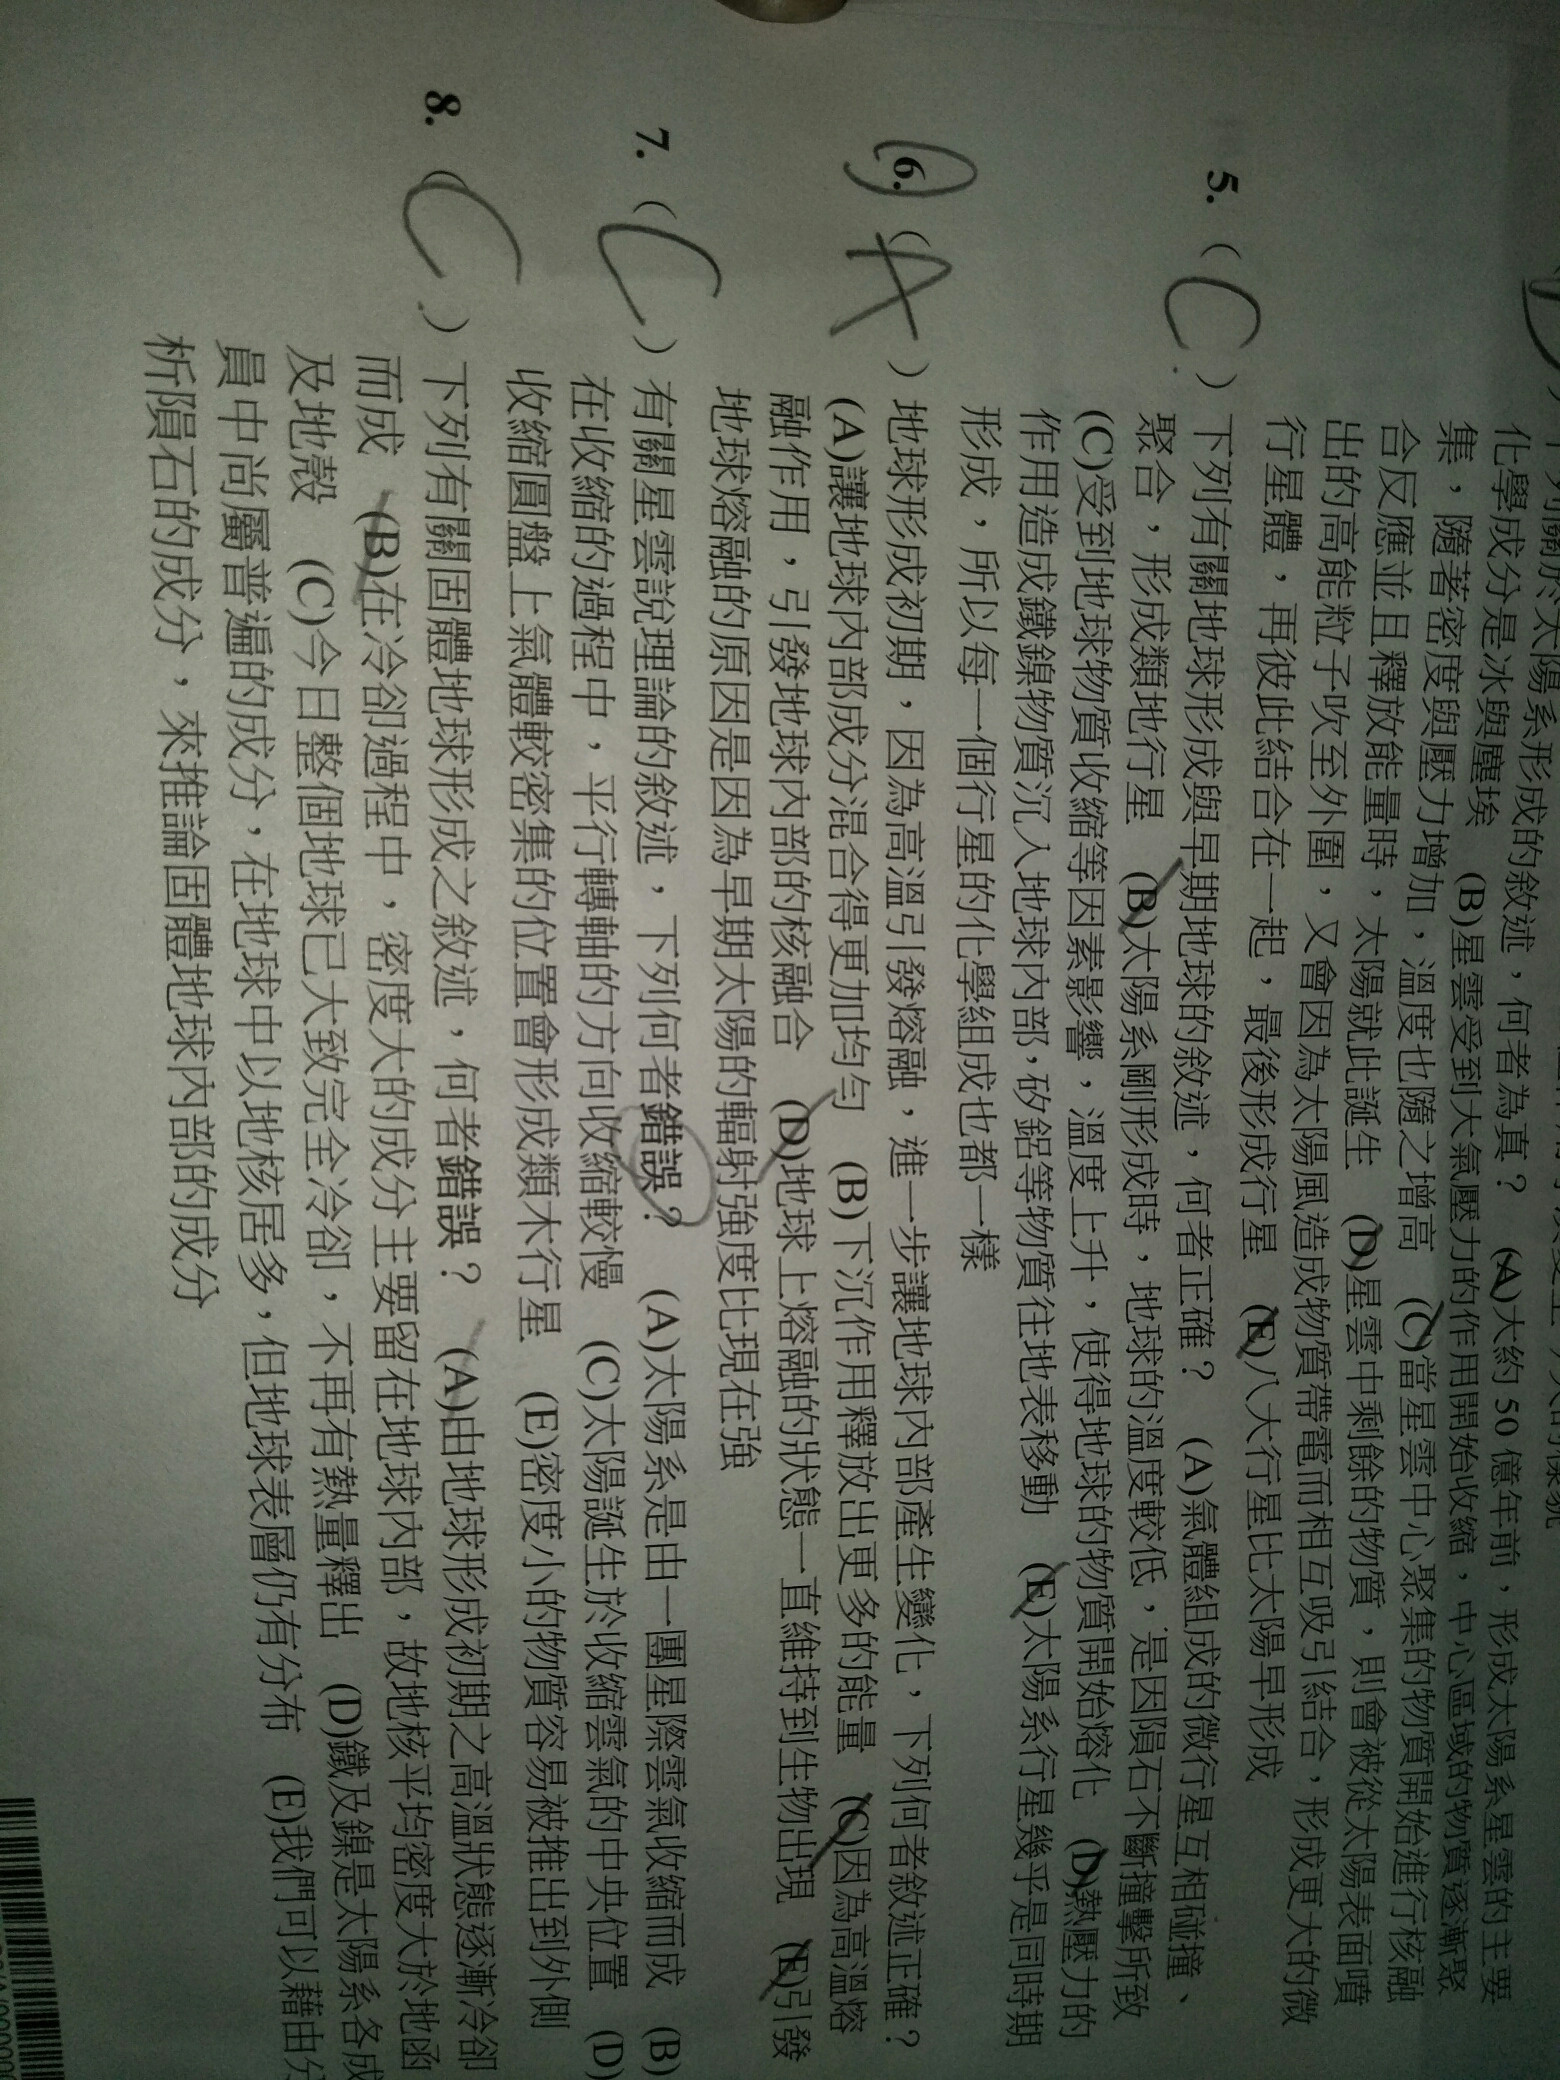 下列關於太陽系形成的敘述，何者為真？ (A)大約 50 億年前，形成太陽系星雲的主要
化學成分是冰與塵埃 (B)星雲受到大氣壓力的作用開始收縮，中心區域的物質逐漸聚
集，隨著密度與壓力增加，溫度也隨之增高 (C)當星雲中心聚集的物質開始進行核融
合反應並且釋放能量時，太陽就此誕生 (D)星雲中剩餘的物質，則會被從太陽表面噴
出的高能粒子吹至外圍，又會因為太陽風造成物質帶電而相互吸引結合，形成更大的微
行星體，再彼此結合在一起，最後形成行星 (E)八大行星比太陽早形成
5. (C) 下列有關地球形成與早期地球的敘述，何者正確？ (A)氣體組成的微行星互相碰撞、
聚合，形成類地行星 (B)太陽系剛形成時，地球的溫度較低，是因隕石不斷撞擊所致
(C)受到地球物質收縮等因素影響，溫度上升，使得地球的物質開始熔化 (D)熱壓力的
作用造成鐵鎳物質沉入地球內部，矽鋁等物質往地表移動 (E)太陽系行星幾乎是同時期
形成，所以每一個行星的化學組成也都一樣
6. (A) 地球形成初期，因為高溫引發熔融，進一步讓地球內部產生變化，下列何者敘述正確？
(A)讓地球內部成分混合得更加均勻 (B)下沉作用釋放出更多的能量 (C)因為高溫熔
融作用，引發地球內部的核融合 (D)地球上熔融的狀態一直維持到生物出現 (E)引發
地球熔融的原因是因為早期太陽的輻射強度比現在強
7. (C) 有關星雲說理論的敘述，下列何者錯誤？ (A)太陽系是由一團星際雲氣收縮而成 (B)
在收縮的過程中，平行轉軸的方向收縮較慢 (C)太陽誕生於收縮雲氣的中央位置 (D)
收縮圓盤上氣體較密集的位置會形成類木行星 (E)密度小的物質容易被推出到外側
8. (C) 下列有關固體地球形成之敘述，何者錯誤？ (A)由地球形成初期之高溫狀態逐漸冷卻
而成 (B)在冷卻過程中，密度大的成分主要留在地球內部，故地核平均密度大於地函
及地殼 (C)今日整個地球已大致完全冷卻，不再有熱量釋出 (D)鐵及鎳是太陽系各成
員中尚屬普遍的成分，在地球中以地核居多，但地球表層仍有分布 (E)我們可以藉由分
析隕石的成分，來推論固體地球內部的成分